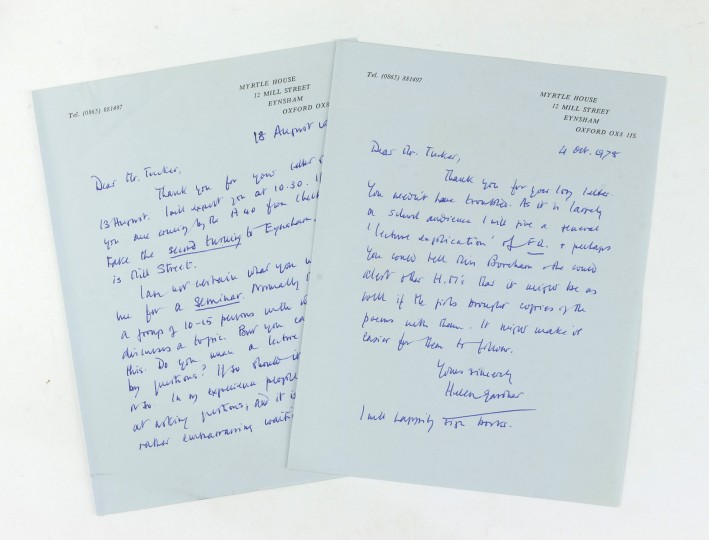 Tel. (0865) 881497
MYRTLE HOUSE
12 MILL STREET
EYNSHAM
OXFORD OX8
18 August
Dear Mr. Tucker,
Thank you for your letter
13 August. I will expect you at 10.30. If
you are coming by the A 40 from
take the second turning to Eynsham,
is Mill Street.
I am not certain what you
me for a Seminar. Normally
a group of 10-15 persons
discusses a topic. But you
this. Do you mean a lecture
by questions? If so should it
or so. In my experience people
at asking questions, and it is
rather embarrassing waiting
Tel. (0865) 881497
MYRTLE HOUSE
12 MILL STREET
EYNSHAM
OXFORD OX8 1JS.
4 Oct. 1978
Dear Mr. Tucker,
Thank you for your long letter.
You needn't have troubled. As it is largely
a school audience I will give a general
'lecture explication' of F.Q. & perhaps
you could tell Miss Boreham & she could
alert other H.M's that it might be as
well if the girls brought copies of the
poems with them. It might make it
easier for them to follow.
Yours sincerely
Helen Gardner
I will happily sign books.